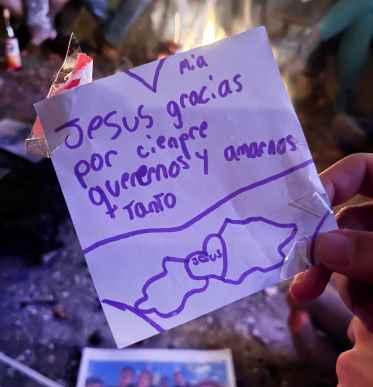 Mia
JESUS gracias
por ciempre
querernos y amarnos
+ TanTO
Jesus